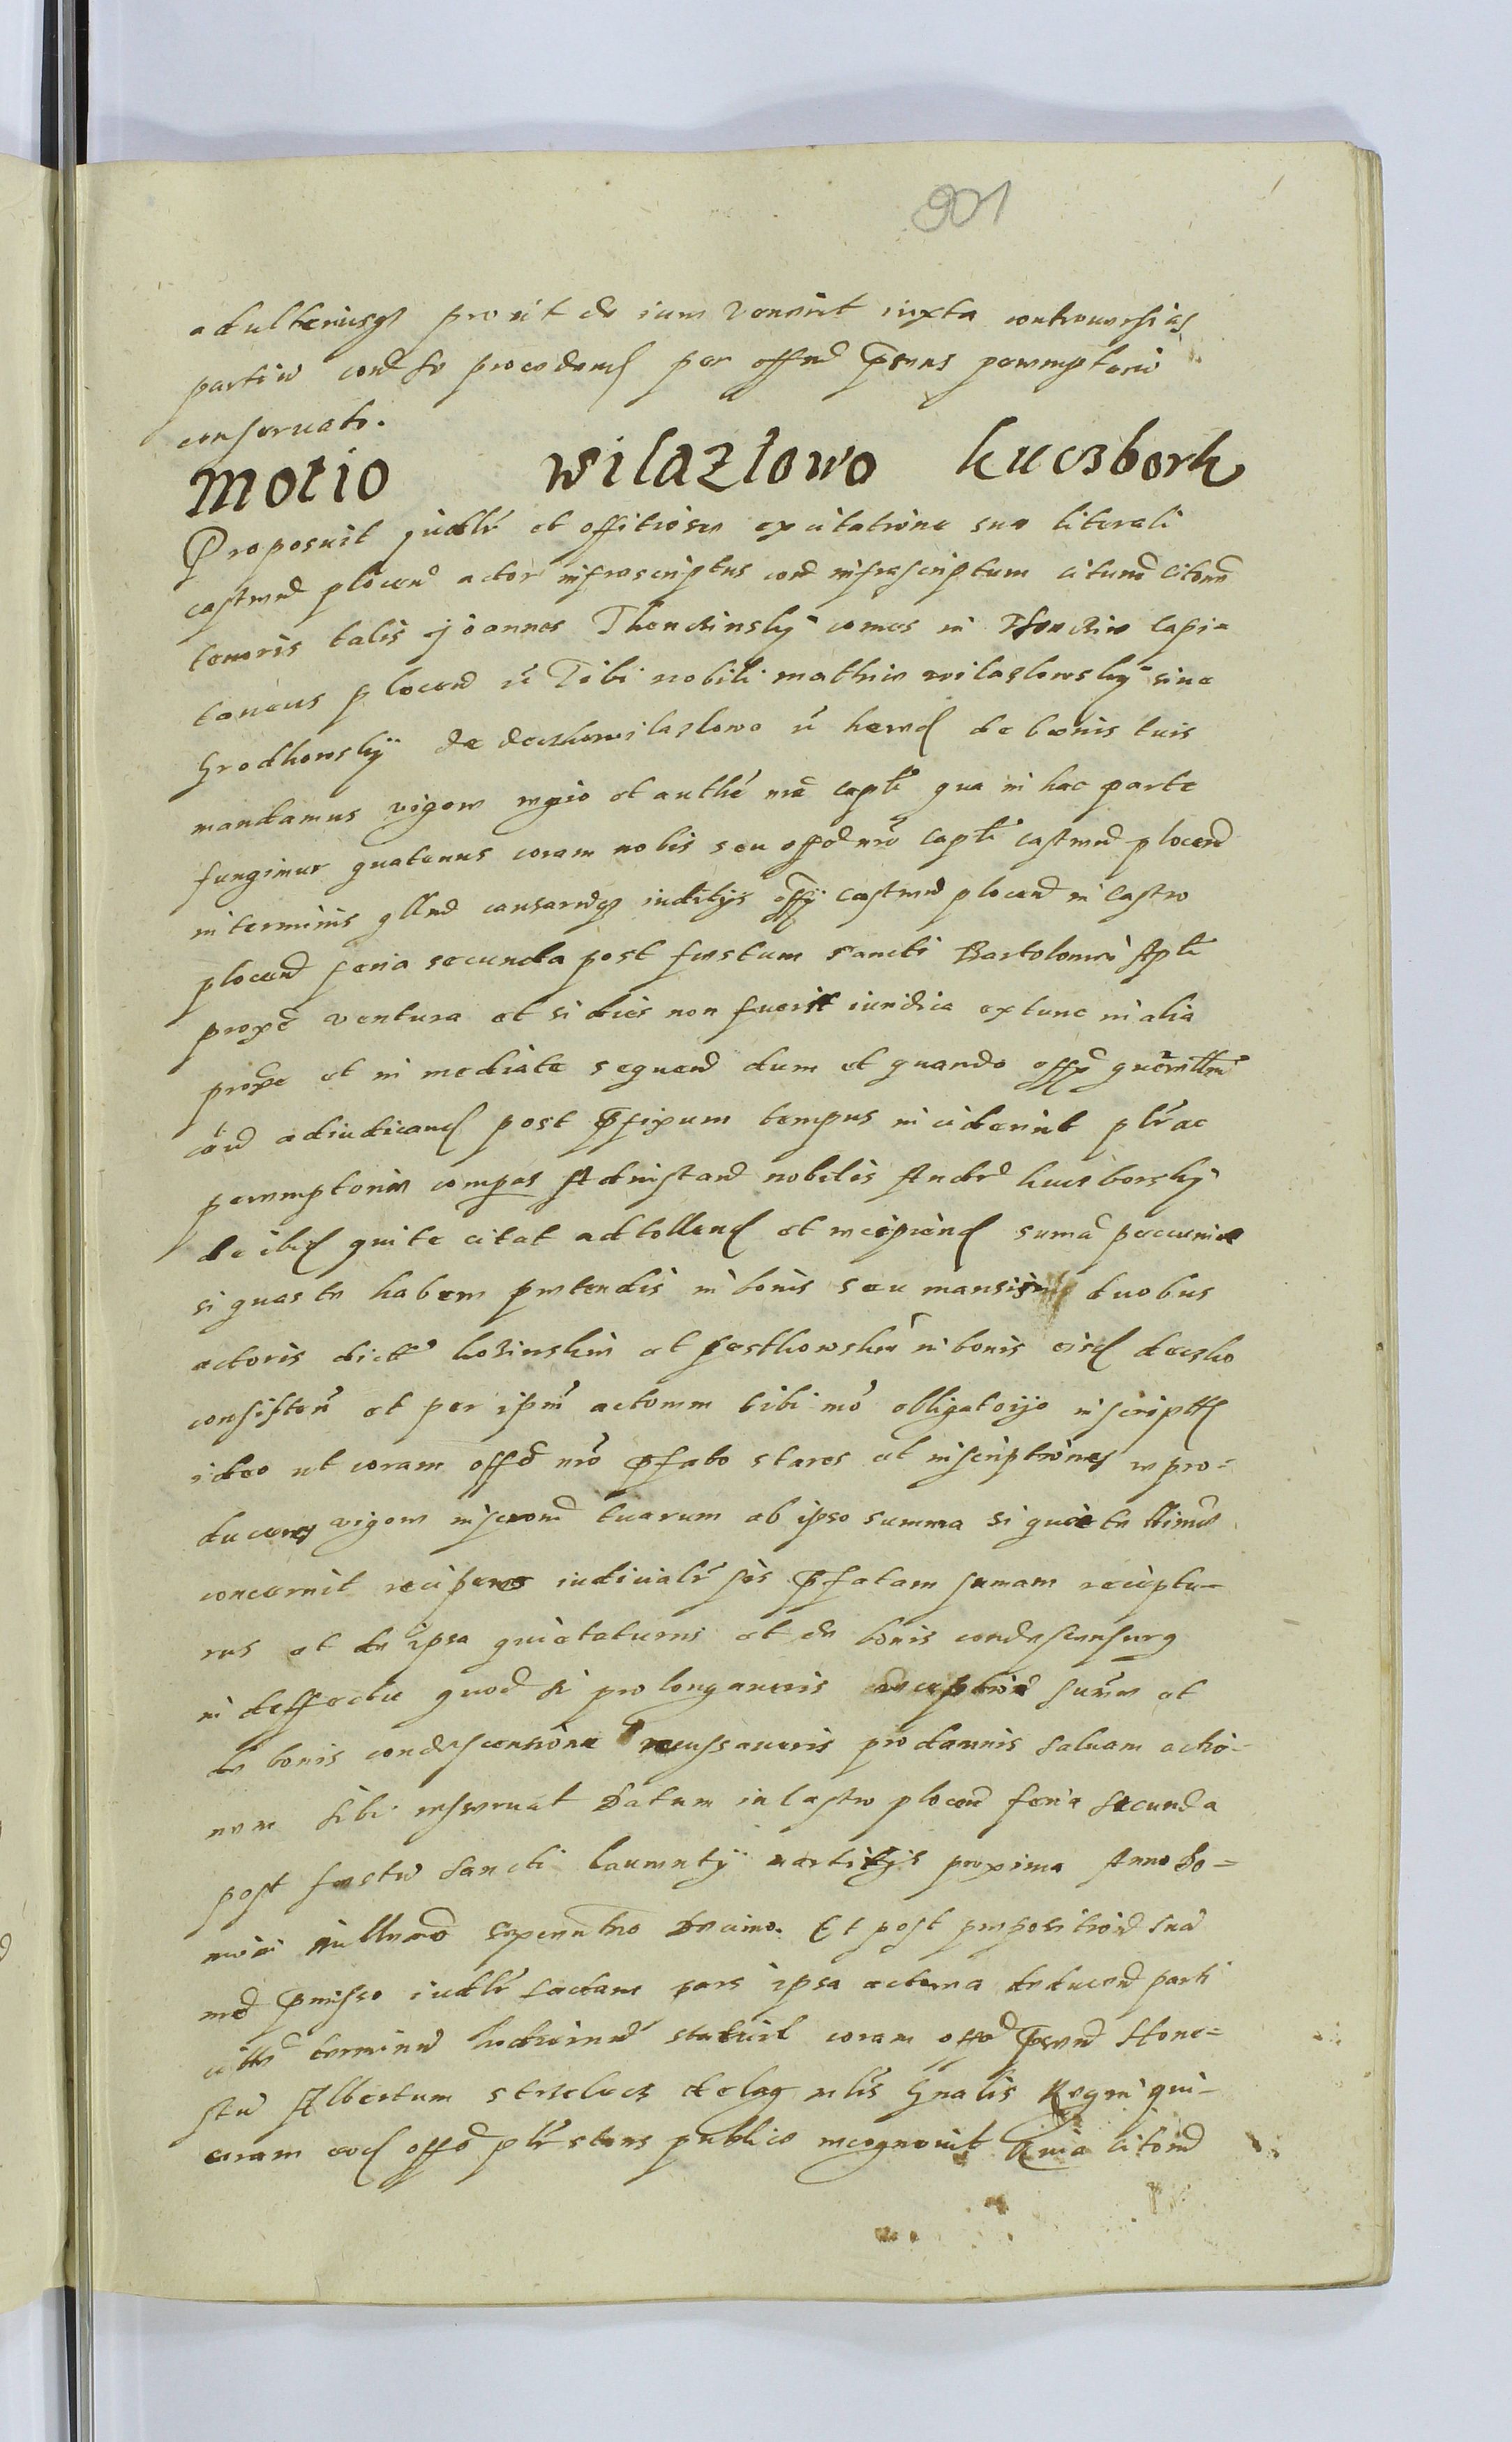 901
adulteriusq prout de iure venerit iuxta controuersias
partiu cond se procedend per offm prens peremptorie
conseruato.
Motio Wilazlowo kuczbork
Proposuit judlr et offitiose ex citatione sua literali
castren plocen actor infrascriptus cond infrascriptum citum citonem
tenoris talis Joannes Thenczinsky comes in Thenczin Capi=
taneus plocen Tibi nobili mathie wilaslowsky siue
Grodkowsky de deczkowilaslowo hered de bonis tuis
mandamus vigore regio et authe nra captli qua in hac parte
fungimur quatenus coram nobis seu offo nro Captli castren plocen
in terminis qllnd causarumq iuditijs offy castren plocen in Castro
plocen feria secunda post festum sancti Bartolomei Apli
proxe ventura et si dies non fuerit iuridica extunc in alia
proxe et in mediate sequen dum et quando
adiudicand post pfixum tempus inciderint plr ac
peremptorie compas Adinstand nobilis Andr kuczborsky
de ibid qui te citat ad tollend et recipiend suma pecunie
si quas te habere pretendis in bonis seu mansis duobus
actoris dict kosinskie et pestkowskie in bonis eisd deczko
consisten et per ipm actorem tibi mo obligatorio inscriptis
ideo ut coram offo nro pfato stares et inscriptiones repro=
duceres vigore inscrond tuarum ab ipso summa si que te llime
concernit reciperes iudicialr scis pfatam sumam receptu=
rus et de ipsa quietaturus et de bonis condescensurq
in deffectu quod si prolongaueris receptione sume et
de bonis condescensione recusaueris pro damnis saluam actio=
nem sibi reseruat Datum in Castro plocen feria secunda
post festu sancti Laurenty martiris proxima Anno Do=
mini millmo sexcentmo decimo. Et post propositiond sua
mo pmisso iudlr factam pars ipsa actorea deducend parti
citte terminu hodiernu statuit coram offo prend Hone=
stu Albertum strzelecz de lag mlis Gnalis Regni qui=
coram eod offo plr stans publice recognouit Quia citond